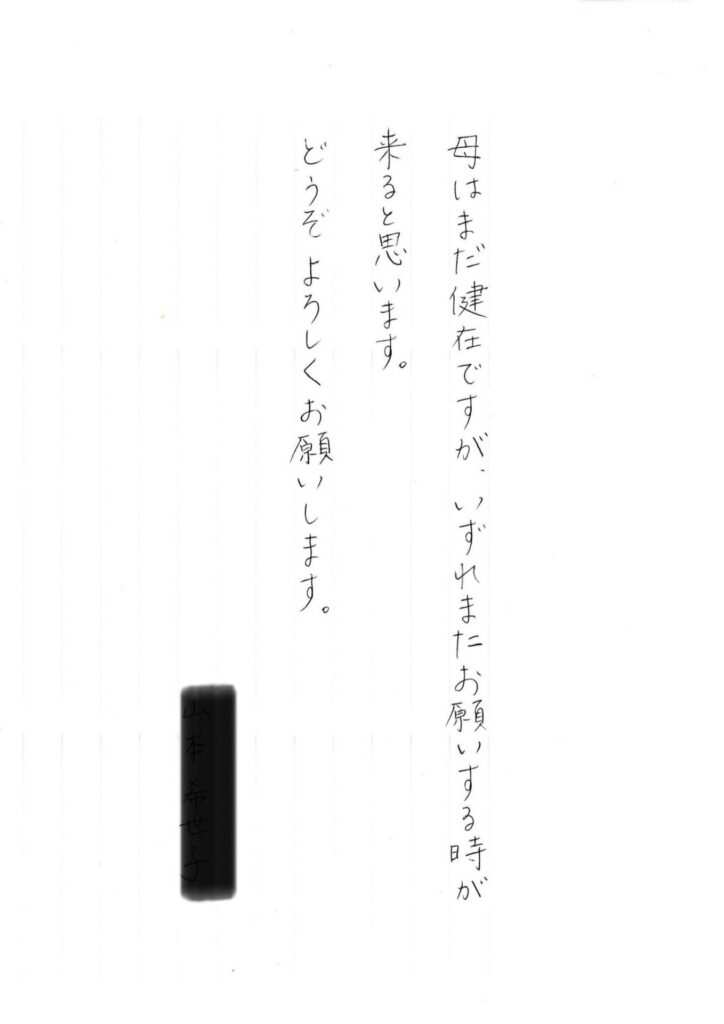 母はまだ健在ですが、いずれまたお願いする時が
来ると思います。
どうぞよろしくお願いします。